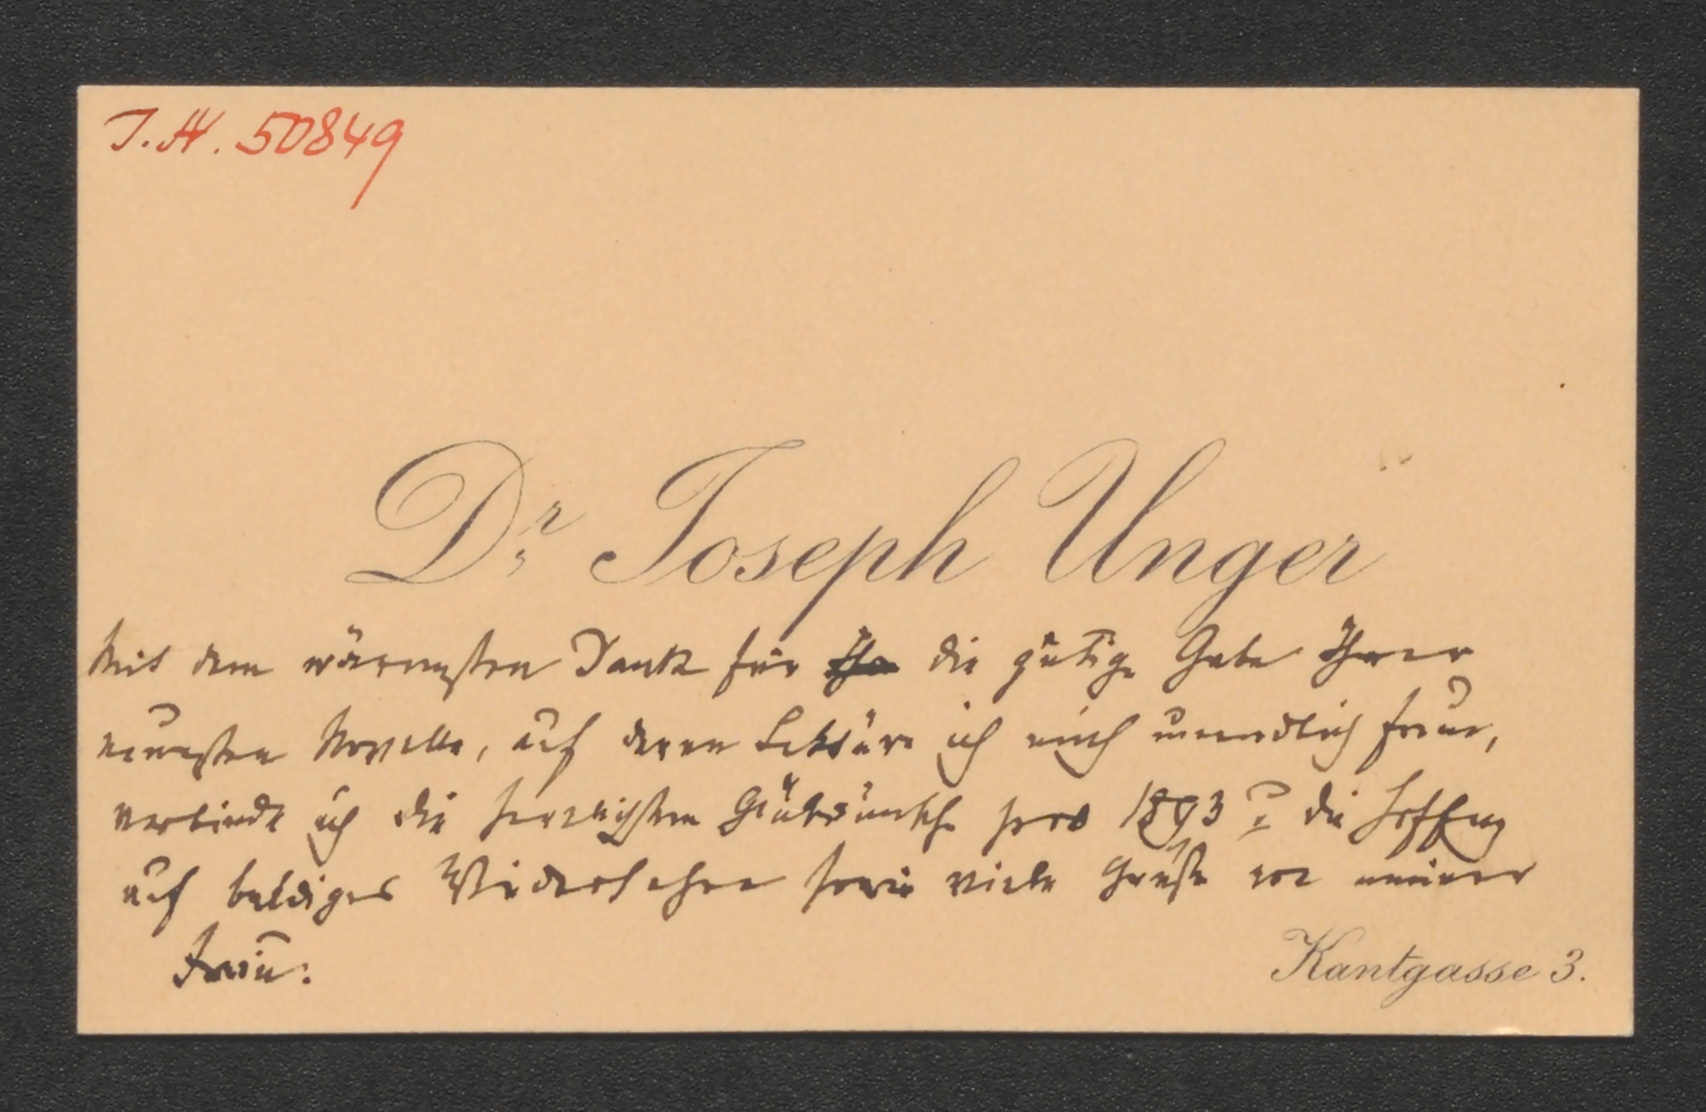 J.N. 50849
Dr. Joseph Unger
Mit dem wärmsten Dank für die gütige Gabe Ihrer
neuesten Novelle, auf deren Lektüre ich mich unendlich freue,
verbinde ich die herzlichsten Glückwünsche pro 1893 u. die Hoffnung
auf baldiges Wiedersehen sowie viele Grüße von meiner
Frau.
Kantgasse 3.